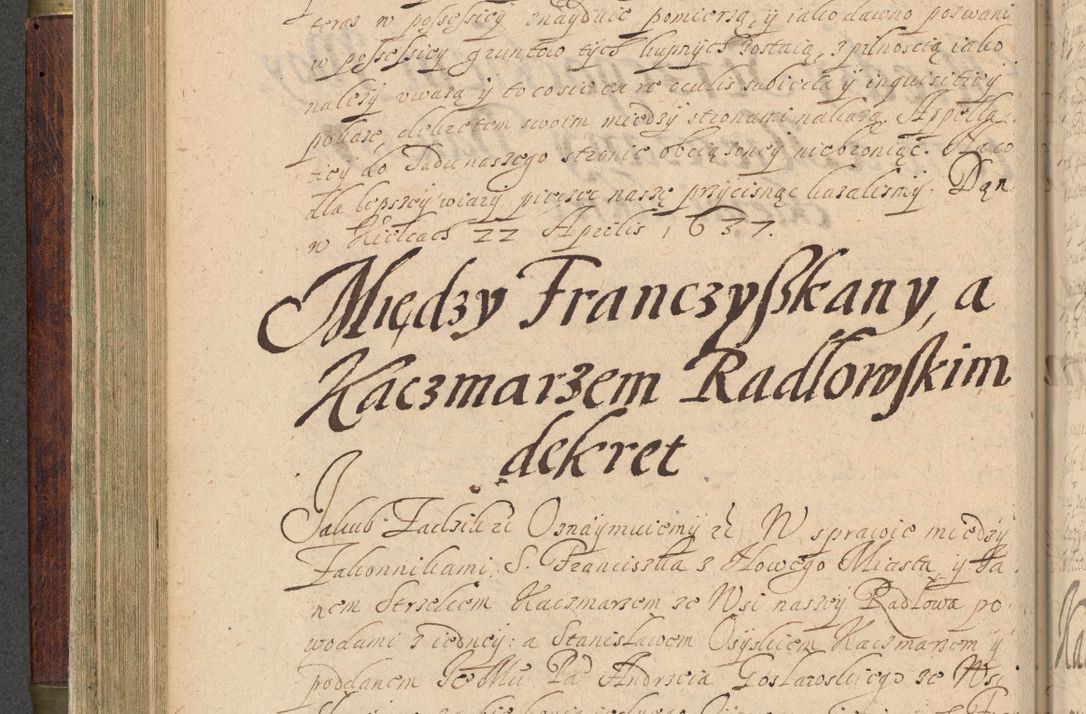 teraz w possessiey znayduie pomierzą, y iako dawno pozwani
w possessiey gruntow tych kupnych zostaią, z pilnoscią iako
należy uważą y to co sie ex re oculis subiecta y inquisitiey
pokaże, dekretem swoim między stronami nakażą. Appella
tiey do Sądu naszego stronie obciążoney niebroniąc. Na co
dla lepszey wiary pieczęć naszę przycisnąć kazalismy. Dan
w Kielcach 22 Aprilis 1637.
Między Franczyßkany, a
Kaczmarzem Radłowskim
dekret
Jakub Zadzik ze Oznaymuiemy iż W sprawie miedzy
Zakonnikami S. Franciszka z Nowego Miasta y Ja
nem Strzelcem Kaczmarzem ze Wsi naszey Radłowa po
wodami z iedney: a Stanisławem Osyskiem Kaczmarzem y
poddanem Je° Mci Pa Andrzeia Gosławskiego ze Wsi